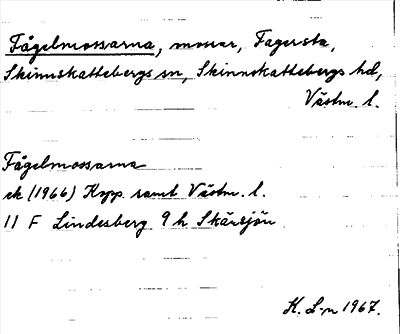 Fågelmossarna, mossar, Fagersta,
Skinnskattebergs sn, Skinnskattebergs hd,
Västm. l.
Fågelmossarna
ek (1966) Kopp. samt Västm. l.
11 F Lindesberg 9 h Skärsjön
K. L-n 1967.